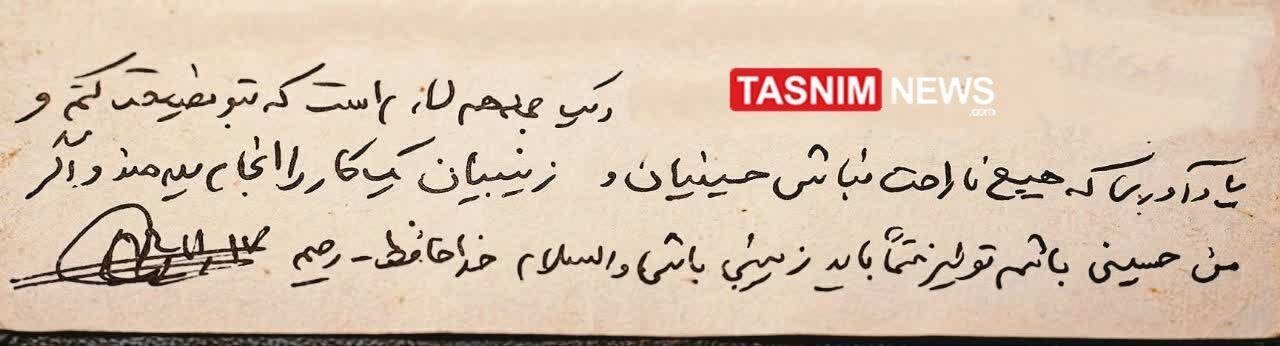 TASNIM NEWS
.com
و یک جمله لازم است که بتو نصیحت کنم و
یادآور باشم که هیچ ناراحت نباش حسینیان و زینبیان یک کار را انجام میدهند و اگر
من حسینی باشم تو نیز حتماً باید زینبی باشی والسلام خداحافظ - رحیم